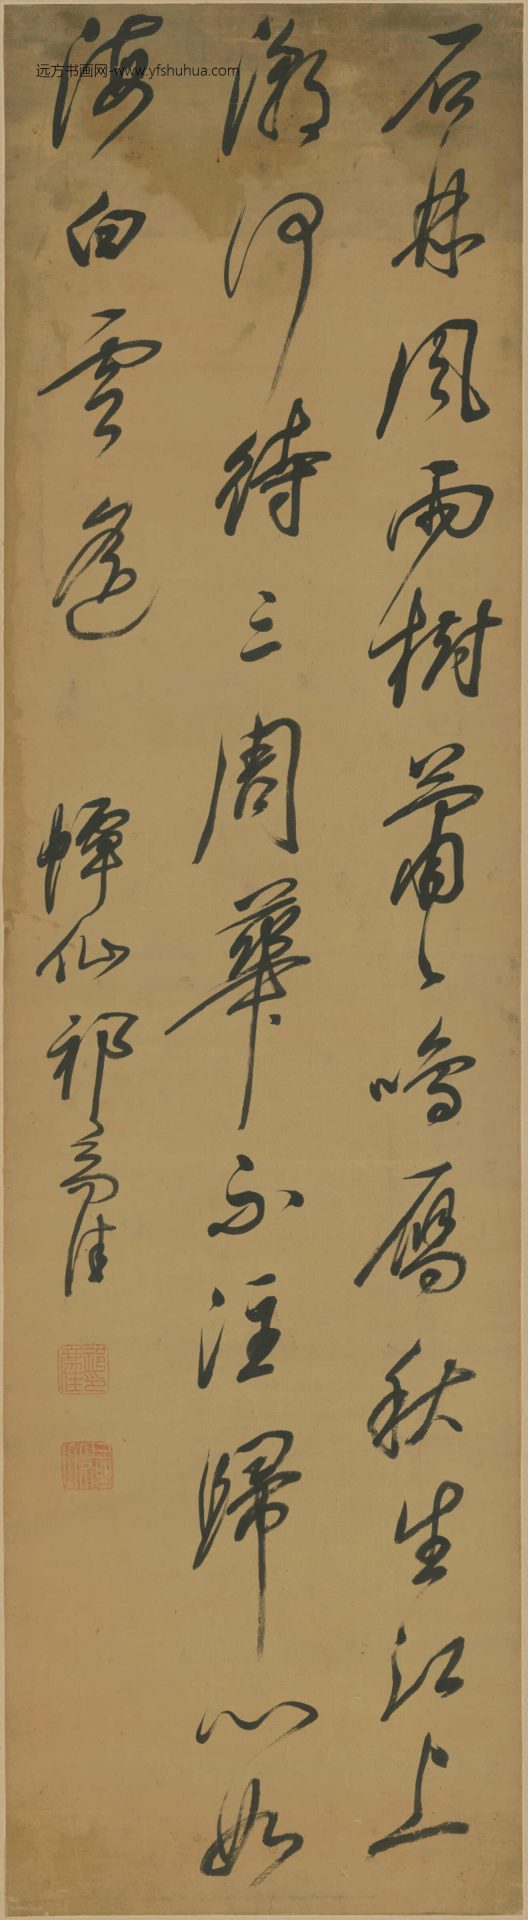 石林風雨樹蕭々鳴雁秋生江上
潮何待三周華不注歸心如
海白雲遙
幝仙祁豸佳
远方书画网-www.yfshuhua.com